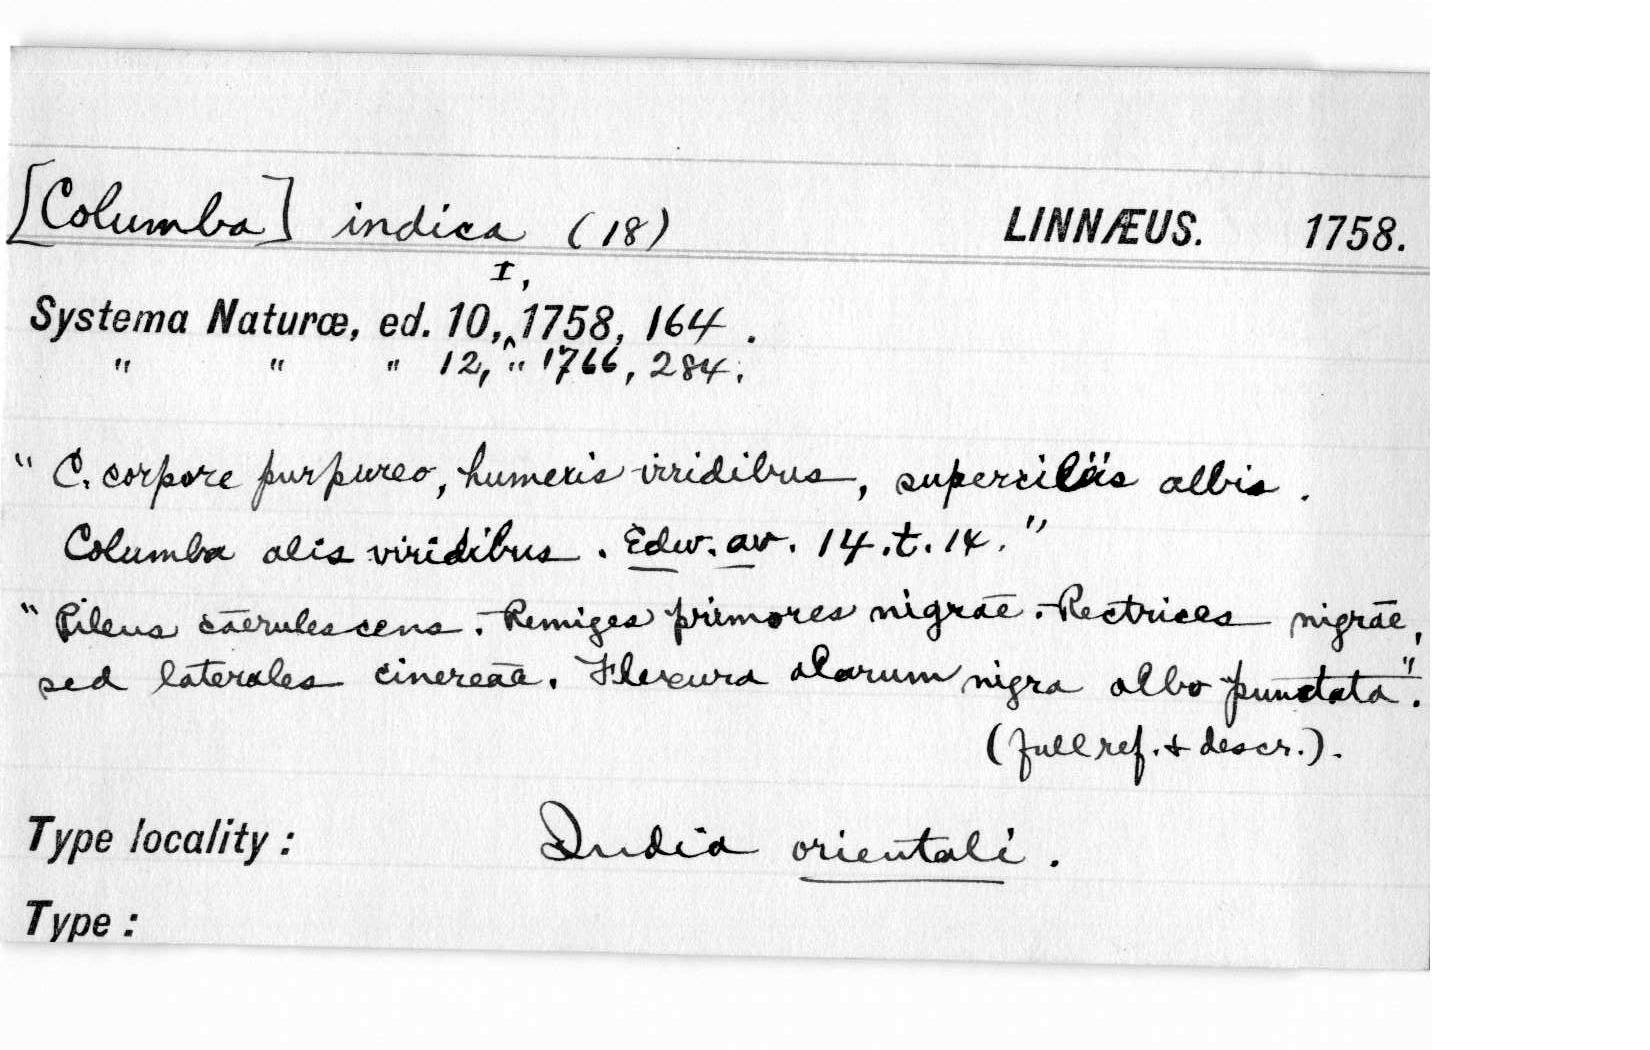 [Columba] indica (18) LINNÆUS. 1758.
Systema Naturæ, ed. 10, I, 1758, 164.
" " " 12, " 1766, 284.
" C. corpore purpureo, humeris viridibus, superciliis albis.
Columba alis viridibus. Edw. av. 14. t. 14."
" Pileus caerulescens. - Remiges primores nigrae. - Rectrices nigrae,
sed laterales cinereae. Flexura alarum nigra albo punctata".
(full ref. & descr.).
Type locality: India orientali.
Type: